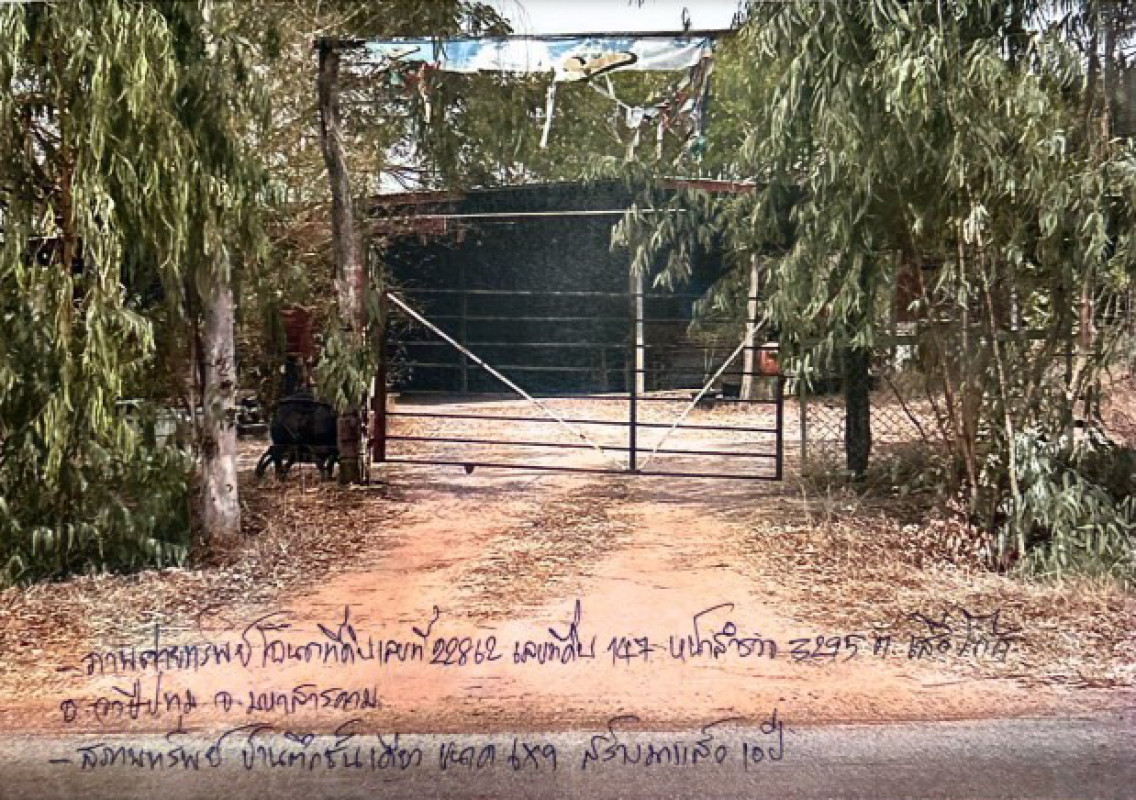 - ภาพถ่ายทรัพย์ โฉนดที่ดินเลขที่ 22862 เลขที่ดิน 147 หน้าสำรวจ 3295 ต. เสือโก้ก
อ. วาปีปทุม จ. มหาสารคาม
- สภาพทรัพย์ บ้านตึกชั้นเดียว ขนาด 6x9 สร้างมาแล้ว 10 ปี